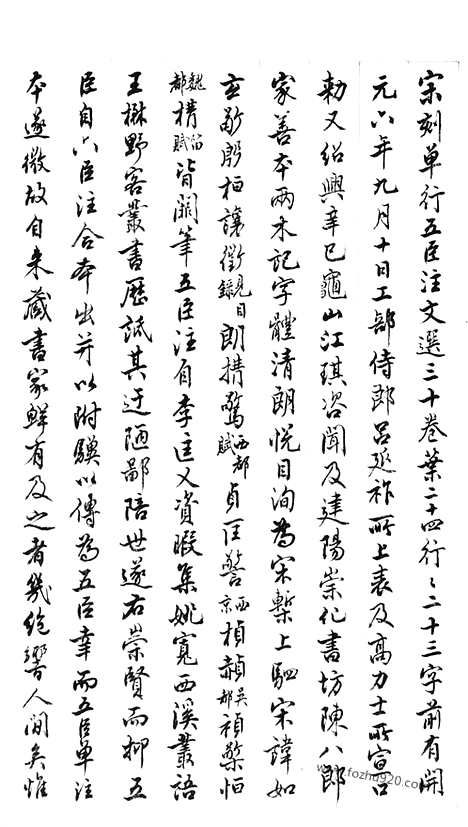 宋刻單行五臣注文選三十卷葉二十四行〻二十三字前有開
元六年九月十日工部侍郎呂延祚所上表及高力士所宣口
勅又紹興辛巳龜山江琪咨聞及建陽崇化書坊陳八郎
家善本兩木記字體清朗悅目洵為宋槧上駟宋諱如
玄敬殷桓讓徵見目錄朗搆驚西都賦貞匡警西京楨赬吳都禎檠恒
魏都搆笛賦皆闕筆五臣注自李匡乂資暇集姚寬西溪叢語
王楙野客叢書歷詆其迂陋鄙陪世遂右崇賢而抑五
臣自六臣注合本出并以附驥以傳為五臣幸而五臣單注
本遂微故自來藏書家鮮有及之者幾絕響人間矣惟
www.fozhu920.com